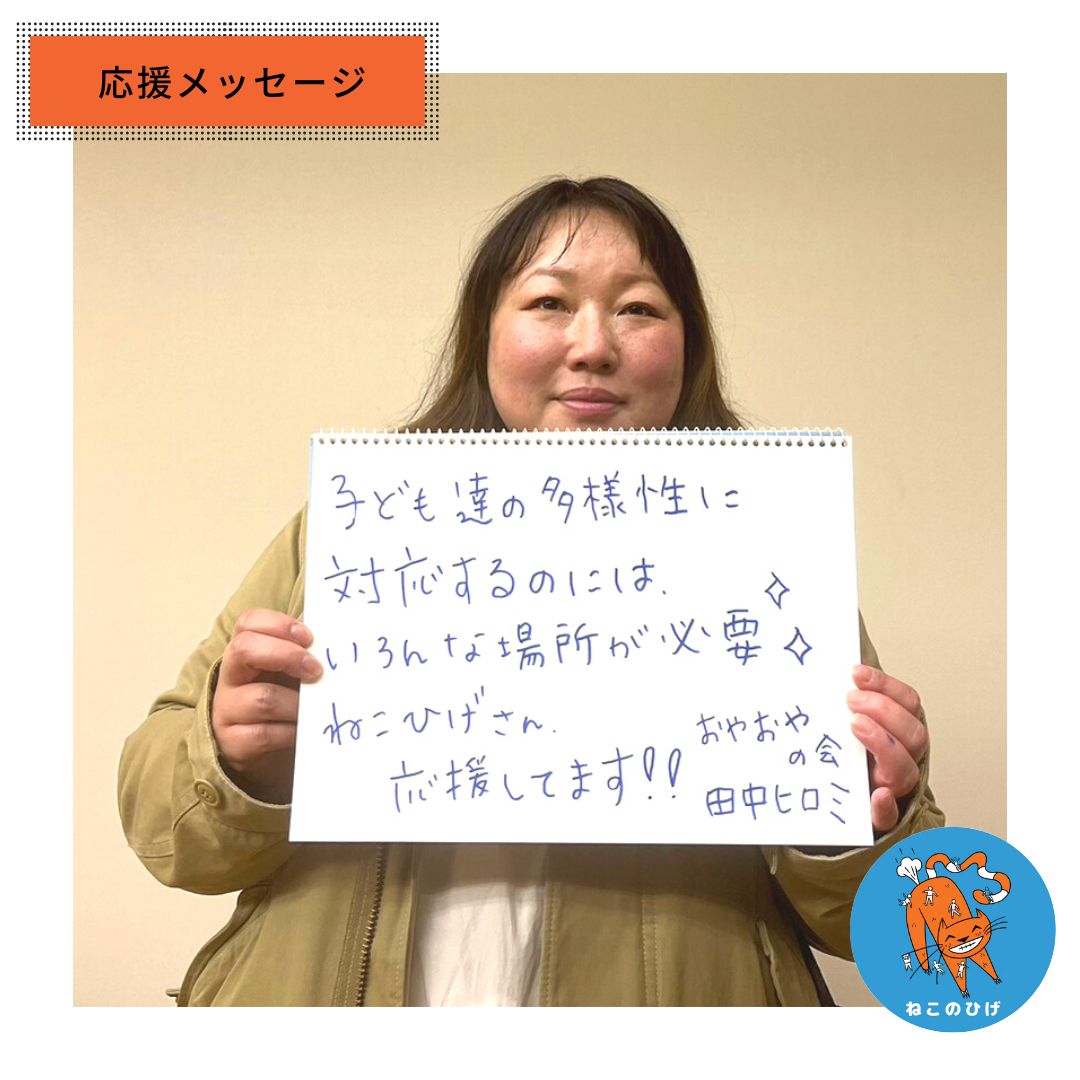 応援メッセージ
子ども達の多様性に
対応するのには、
いろんな場所が必要
ねこひげさん、
応援してます!!
おやおや
の会
田中ヒロミ
ねこのひげ